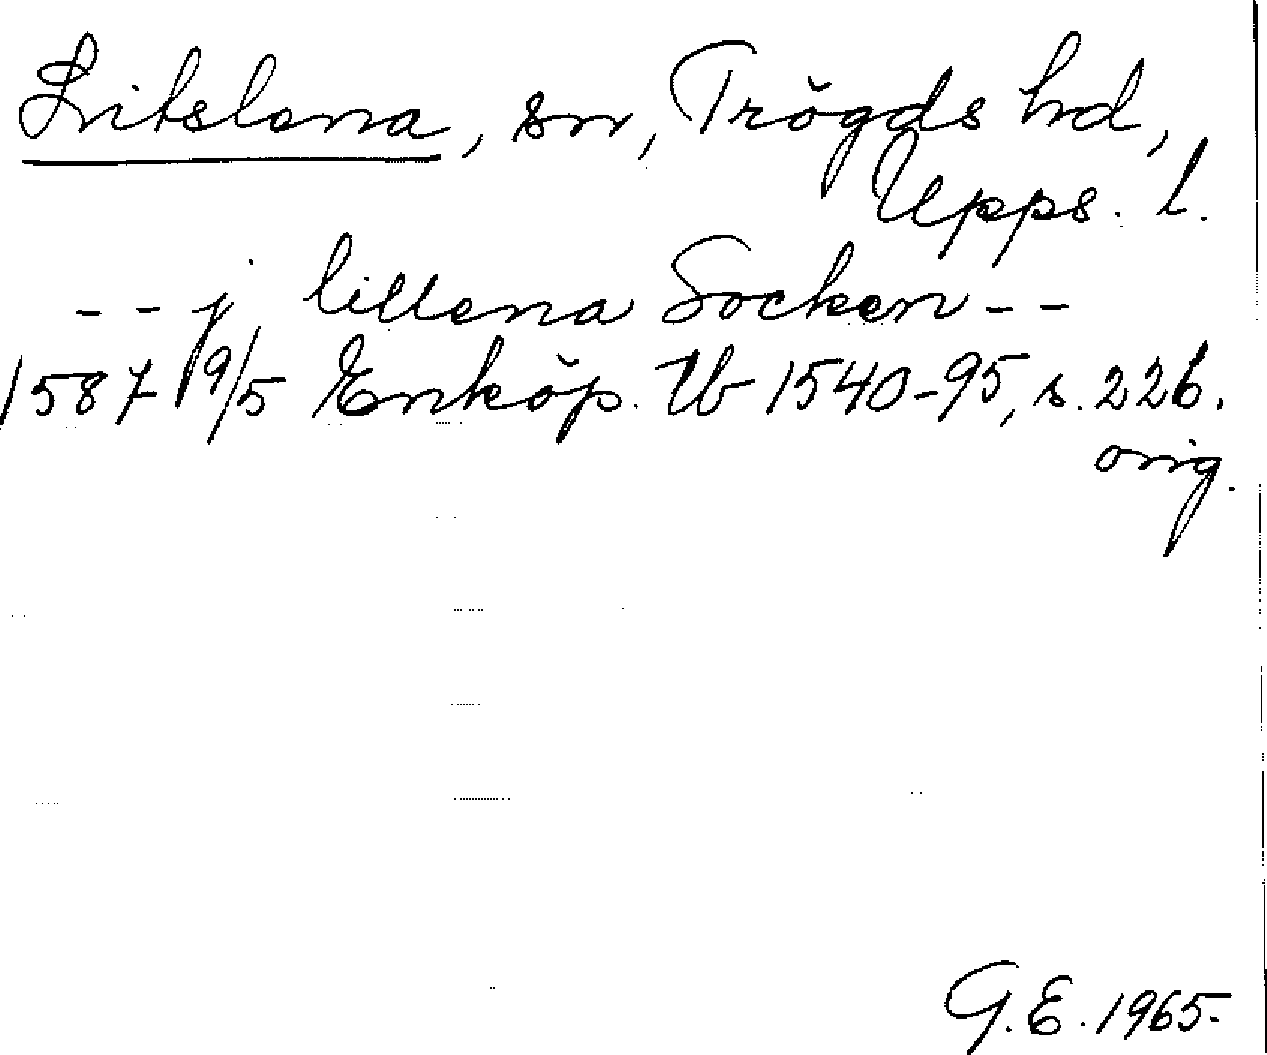 Litslena, sn, Trögds hd,
Upps. l.
- - j lillena Socken - -
1587 19/5 Enköp. Tb 1540-95, s. 226.
orig.
G.E. 1965.